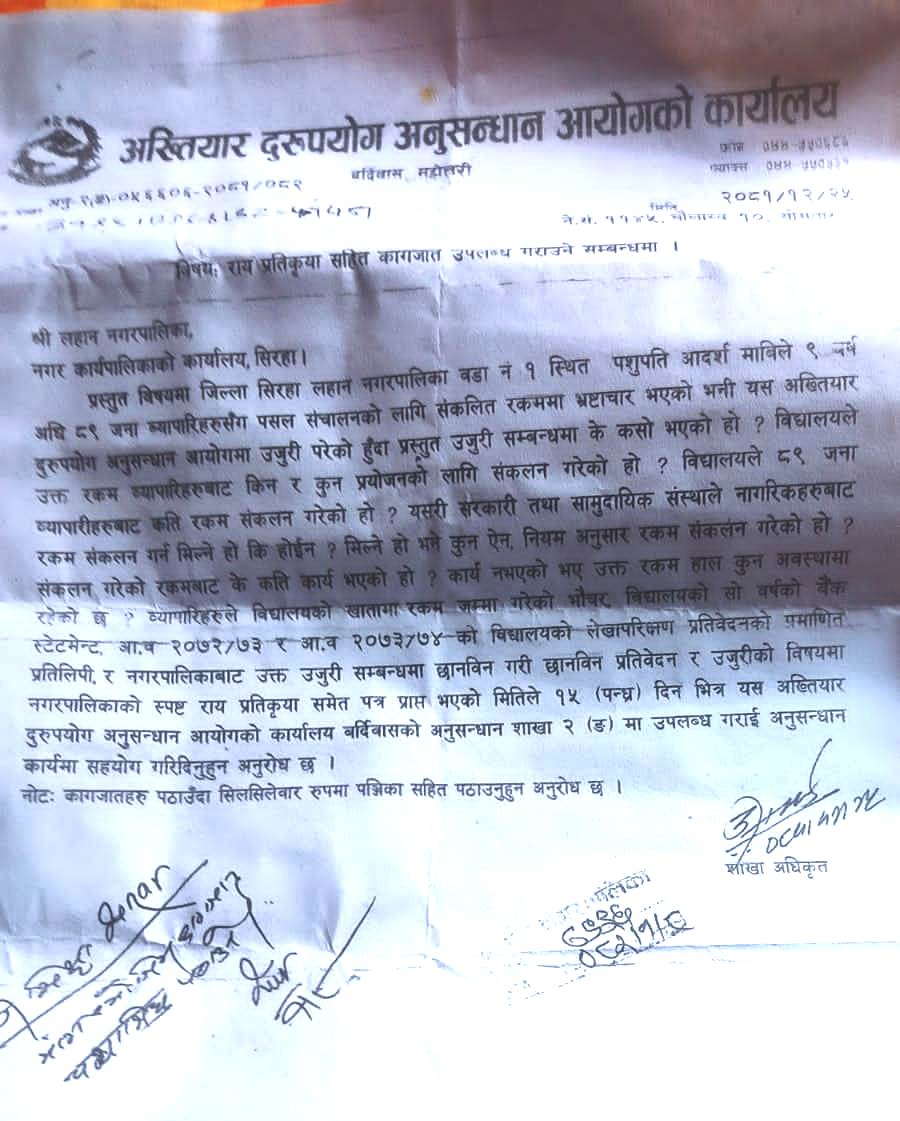 अख्तियार दुरुपयोग अनुसन्धान आयोगको कार्यालय
बर्दिबास, महोत्तरी
फोन ०४४-५५०६८६
फ्याक्स ०४४-५५०५३१
२०८१/१२/२५
मिति
ने.सं. ११४५, चौलाथ्व १०, सोमबार
विषय: राय प्रतिकृया सहित कागजात उपलब्ध गराउने सम्बन्धमा ।
श्री लहान नगरपालिका,
नगर कार्यपालिकाको कार्यालय, सिरहा।
प्रस्तुत विषयमा जिल्ला सिरहा लहान नगरपालिका वडा नं १ स्थित पशुपति आदर्श माविले ९ वर्ष
अघि ८९ जना व्यापारिहरुसँग पसल संचालनको लागि संकलित रकममा भ्रष्टाचार भएको भनी यस अख्तियार
दुरुपयोग अनुसन्धान आयोगमा उजुरी परेको हुँदा प्रस्तुत उजुरी सम्बन्धमा के कसो भएको हो ? विद्यालयले
उक्त रकम ब्यापारिहरुबाट किन र कुन प्रयोजनको लागि संकलन गरेको हो ? विद्यालयले ८९ जना
व्यापारीहरुबाट कति रकम संकलन गरेको हो ? यसरी सरकारी तथा सामुदायिक संस्थाले नागरिकहरुबाट
रकम संकलन गर्न मिल्ने हो कि होईन ? मिल्ने हो भने कुन ऐन, नियम अनुसार रकम संकलन गरेको हो ?
संकलन गरेको रकमबाट के कति कार्य भएको हो ? कार्य नभएको भए उक्त रकम हाल कुन अवस्थामा
रहेको छ ? व्यापारिहरुले विद्यालयको खातामा रकम जम्मा गरेको भौचर, विद्यालयको सो वर्षको बैंक
स्टेटमेन्ट, आ.व २०७२/७३ र आ.व २०७३/७४ को विद्यालयको लेखापरिक्षण प्रतिवेदनको प्रमाणित
प्रतिलिपी, र नगरपालिकाबाट उक्त उजुरी सम्बन्धमा छानविन गरी छानविन प्रतिवेदन र उजुरीको विषयमा
नगरपालिकाको स्पष्ट राय प्रतिकृया समेत पत्र प्राप्त भएको मितिले १५ (पन्ध्र) दिन भित्र यस अख्तियार
दुरुपयोग अनुसन्धान आयोगको कार्यालय बर्दिबासको अनुसन्धान शाखा २ (ङ) मा उपलब्ध गराई अनुसन्धान
कार्यमा सहयोग गरिदिनुहुन अनुरोध छ ।
नोट: कागजातहरु पठाउँदा सिलसिलेवार रुपमा पञ्जिका सहित पठाउनुहुन अनुरोध छ ।
शाखा अधिकृत